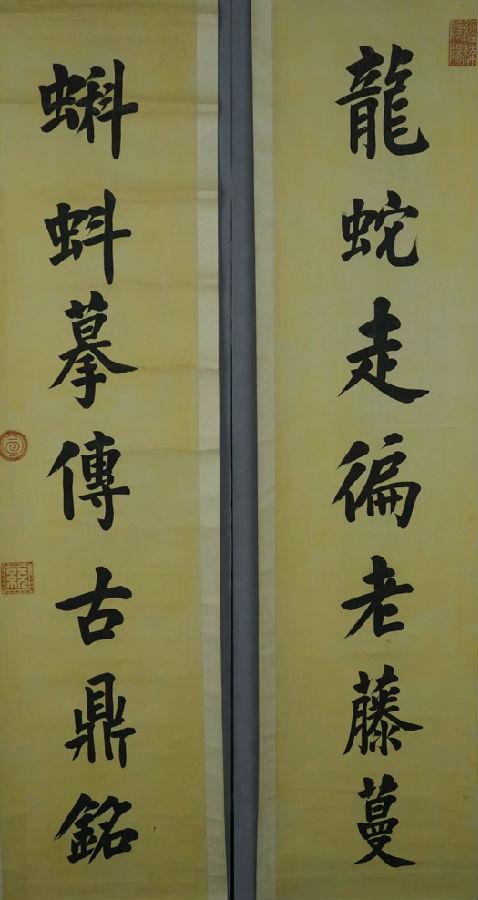 龍蛇走徧老藤蔓
蝌蚪摹傳古鼎銘